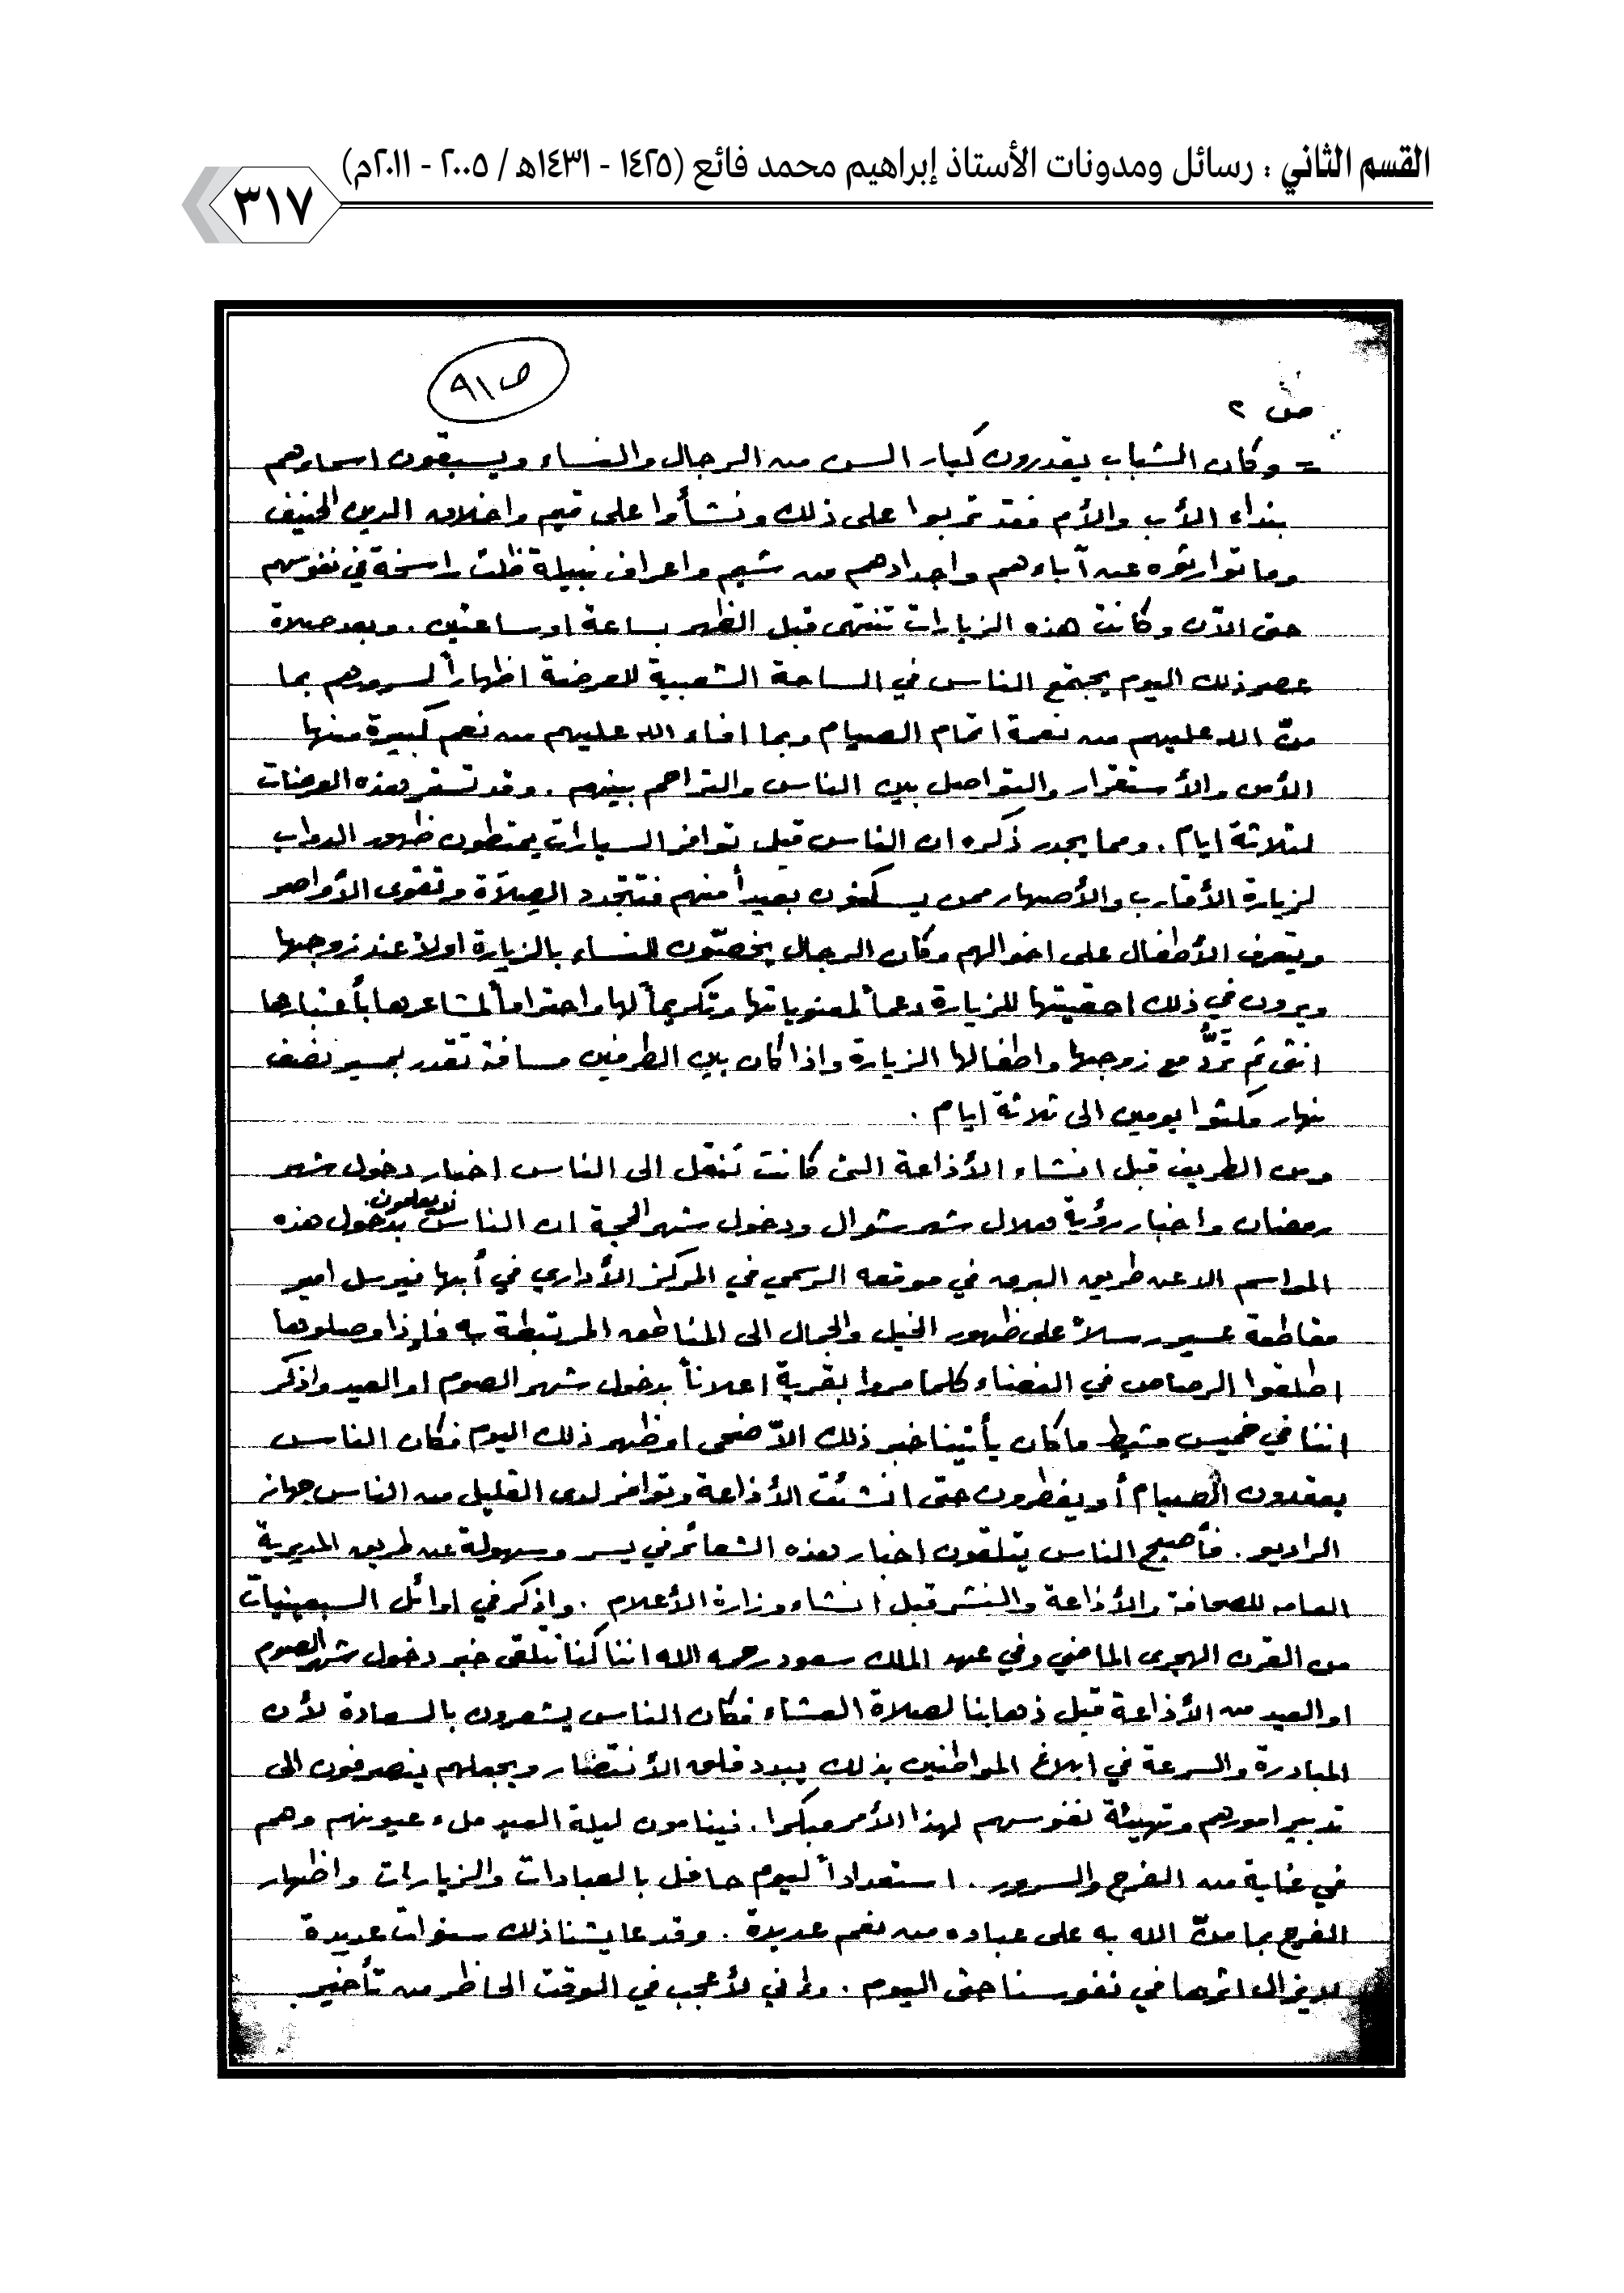 القسم الثاني : رسائل ومدونات الأستاذ إبراهيم محمد فائع (١٤٢٥ - ١٤٣١هـ / ٢٠٠٥ - ٢٠١١م)
٣١٧
ص ٩١
ص ٢
= وكان الشباب يقدرون كبار السن من الرجال والنساء ويسبقون اسماءهم
بنداء الأب والأم فقد تربوا على ذلك ونشأوا على قيم واخلاق الدين الحنيف
وما توارثوه عن آباءهم واجدادهم من شيم واعراف نبيلة ظلت راسخة في نفوسهم
حتى الآن وكانت هذه الزيارات تنتهى قبل الظهر بساعة او ساعتين . وبعد صلاة
عصر ذلك اليوم يجتمع الناس في الساحة الشعبية للعرضة اظهاراً لسرورهم بما
منّ الله عليهم من نعمة اتمام الصيام وبما افاء الله عليهم من نعم كبيرة منها
الأمن والأستقرار والتواصل بين الناس والتراحم بينهم . وقد تستمر هذه العرضات
لثلاثة ايام . ومما يجدر ذكره ان الناس قبل توافر السيارات يمتطون ظهور الدواب
لزيارة الأقارب والأصهار ممن يسكنون بعيداً منهم فتتجدد الصلاة وتقوى الأواصر
ويتعرف الأطفال على اخوالهم وكان الرجال يخصّون النساء بالزيارة اولاً عند زوجها
ويرون في ذلك احقيتها للزيارة دعماً لمعنوياتها وتكريماً لها واحتراماً لمشاعرها بأعتبارها
انثى ثم تَرُدُّ مع زوجها واطفالها الزيارة واذا كان بين الطرفين مسافة تقدر بمسير نصف
نهار مكثوا يومين الى ثلاثة ايام .
ومن الطريف قبل انشاء الأذاعة التى كانت تنقل الى الناس اخبار دخول شهر
رمضان واخبار رؤية هلال شهر شوال ودخول شهر الحجة ان الناس لا يعلمون بدخول هذه
المواسم الا عن طريق البرق في موقعه الرسمي في المركز الأداري في أبها فيرسل امير
مقاطعة عسير رسلاً على ظهور الخيل والجمال الى المناطق المرتبطة به فإذا وصلوها
اطلقوا الرصاص في الفضاء كلما مروا بقرية اعلاناً بدخول شهر الصوم او العيد واذكر
اننا في خميس مشيط ما كان يأتينا خبر ذلك الاّ ضحى او ظهر ذلك اليوم فكان الناس
يعقدون الصيام أو يفطرون حتى انشئت الأذاعة وتوافر لدى القليل من الناس جهاز
الراديو . فأصبح الناس يتلقون اخبار هذه الشعائر في يسر وسهولة عن طريق المديرية
العامه للصحافة والأذاعة والنشر قبل انشاء وزارة الأعلام . واذكر في اوائل السبعينيات
من القرن الهجرى الماضي وفي عهد الملك سعود رحمه الله اننا كنا نتلقى خبر دخول شهر الصوم
او العيد من الأذاعة قبل ذهابنا لصلاة العشاء فكان الناس يشعرون بالسعادة لأن
المبادرة والسرعة في ابلاغ المواطنين بذلك يبدد قلق الأنتضار ويجعلهم ينصرفون الى
تدبير امورهم وتهيئة نفوسهم لهذا الأمر مبكرا . فينامون ليلة العيد ملء عيونهم وهم
في غاية من الفرح والسرور . استعداداً ليوم حافل بالعبادات والزيارات واظهار
الفرح بما منّ الله به على عباده من نعم عديدة . وقد عايشنا ذلك سنوات عديدة
لايزال اثرها في نفوسنا حتى اليوم . وإني لأعجب في الوقت الحاظر من تأخير